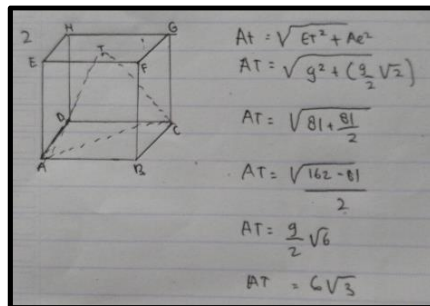 2
H G
T
E F
D C
A B
At = √ET² + AE²
AT = √9² + (9/2 √2)
AT = √81 + 81/2
AT = √162 - 81 / 2
AT = 9/2 √6
AT = 6√3